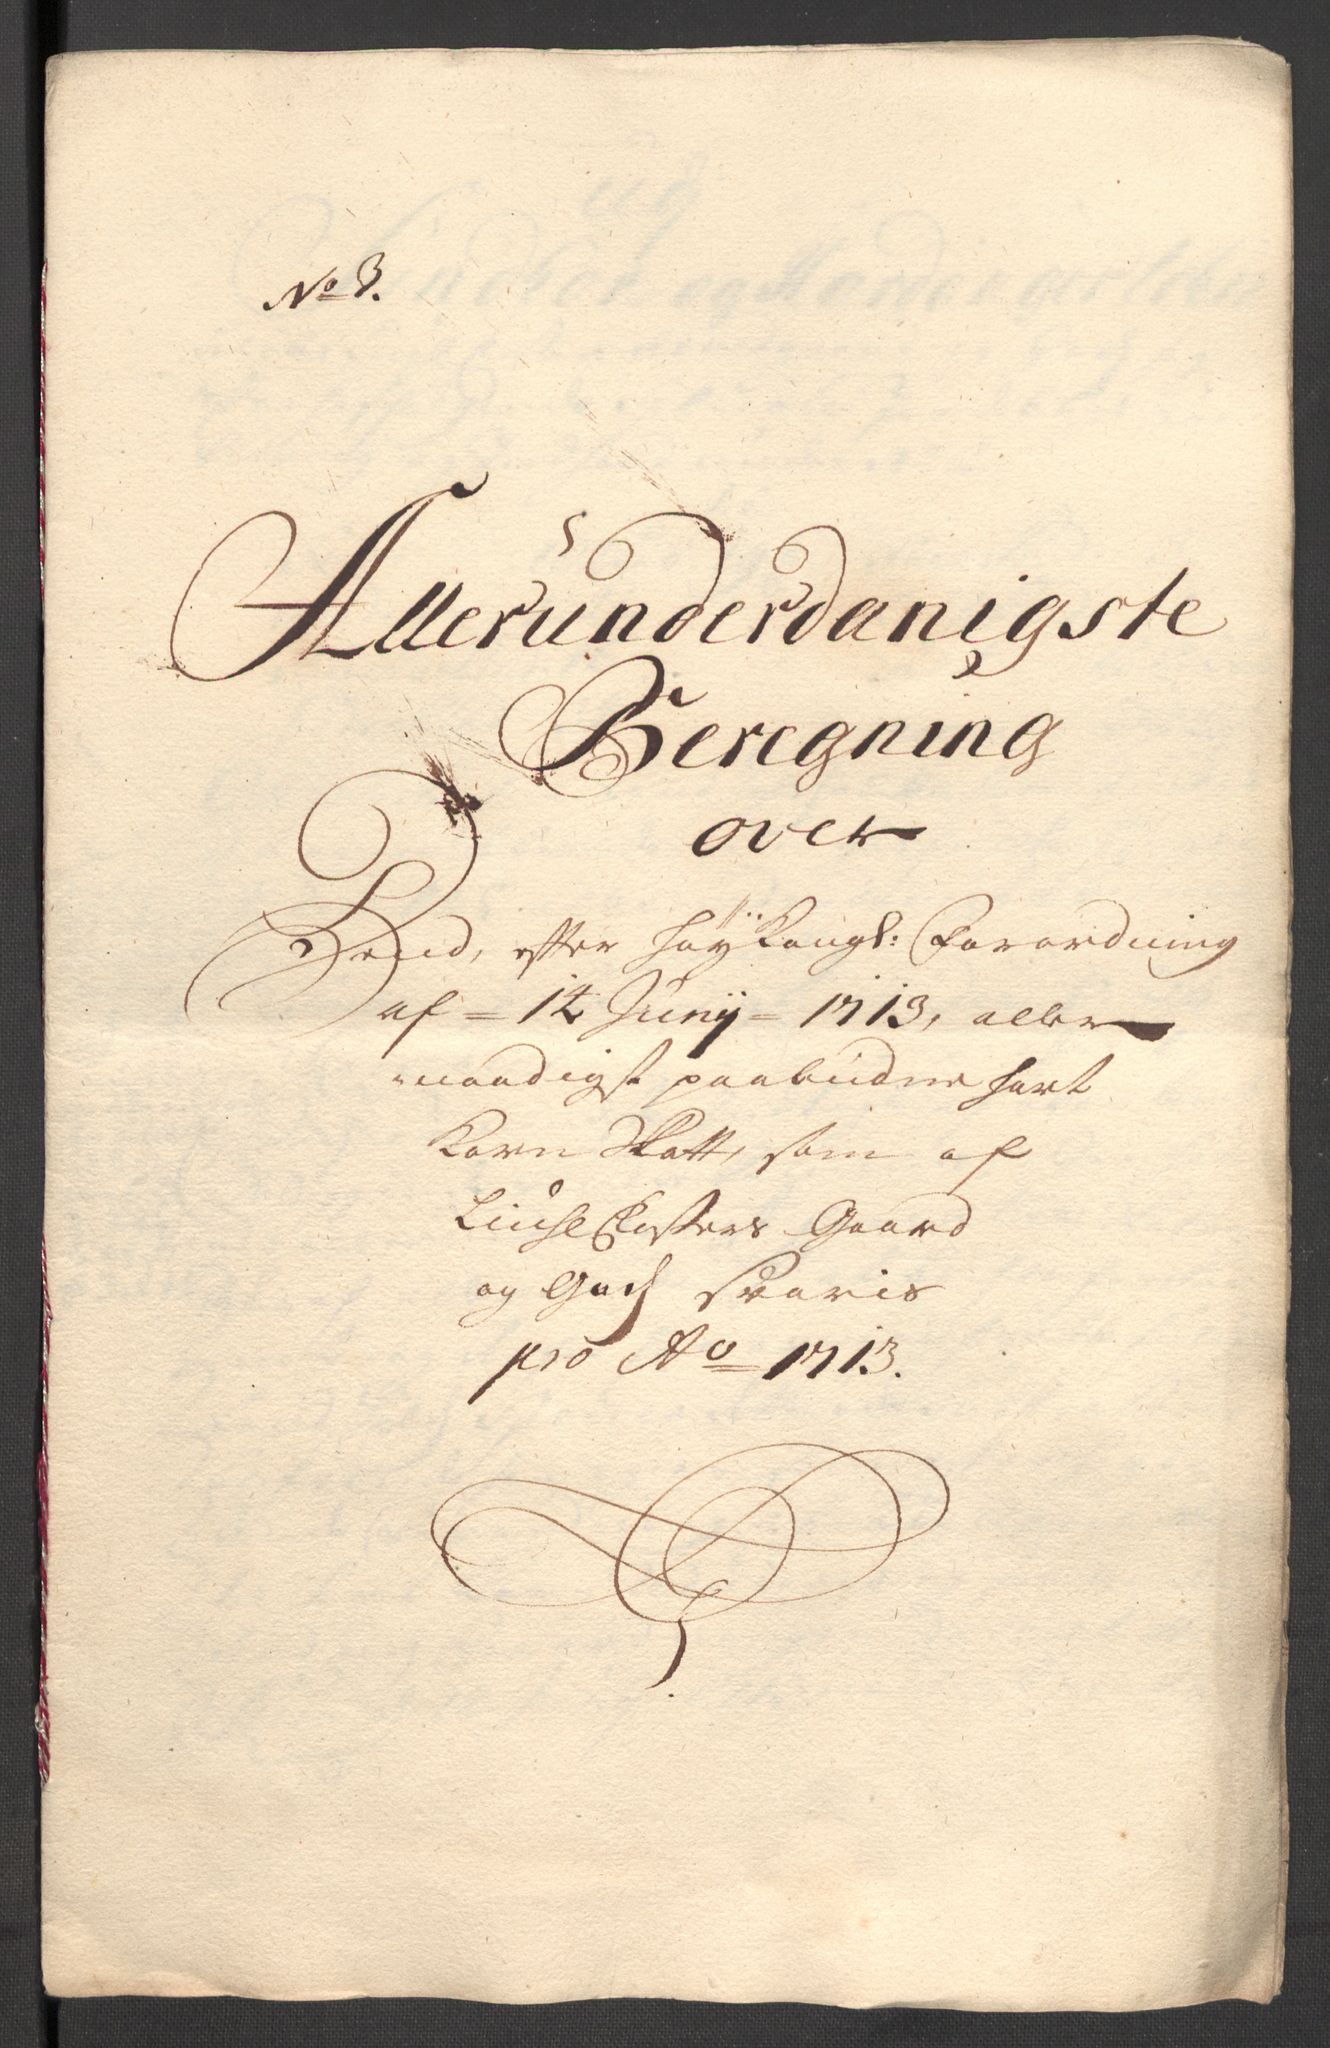 No 3.
Allerunderdanigste
Beregning
over
Dend, efter höÿ Kongl: Forordning
af = 14 Junÿ = 1713, aller
naadigst paabudne hart
Korn Skatt, som af
Closters Gaard
og Gods svaris
pro Ao 1713.